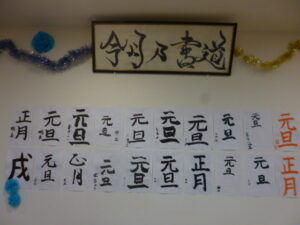 今月乃書道
正月
元旦
元旦
元旦
元旦
元旦
元旦
元旦
元旦
元旦
戌
元旦
正月
元旦
元旦
元旦
正月
元旦
元旦
正月